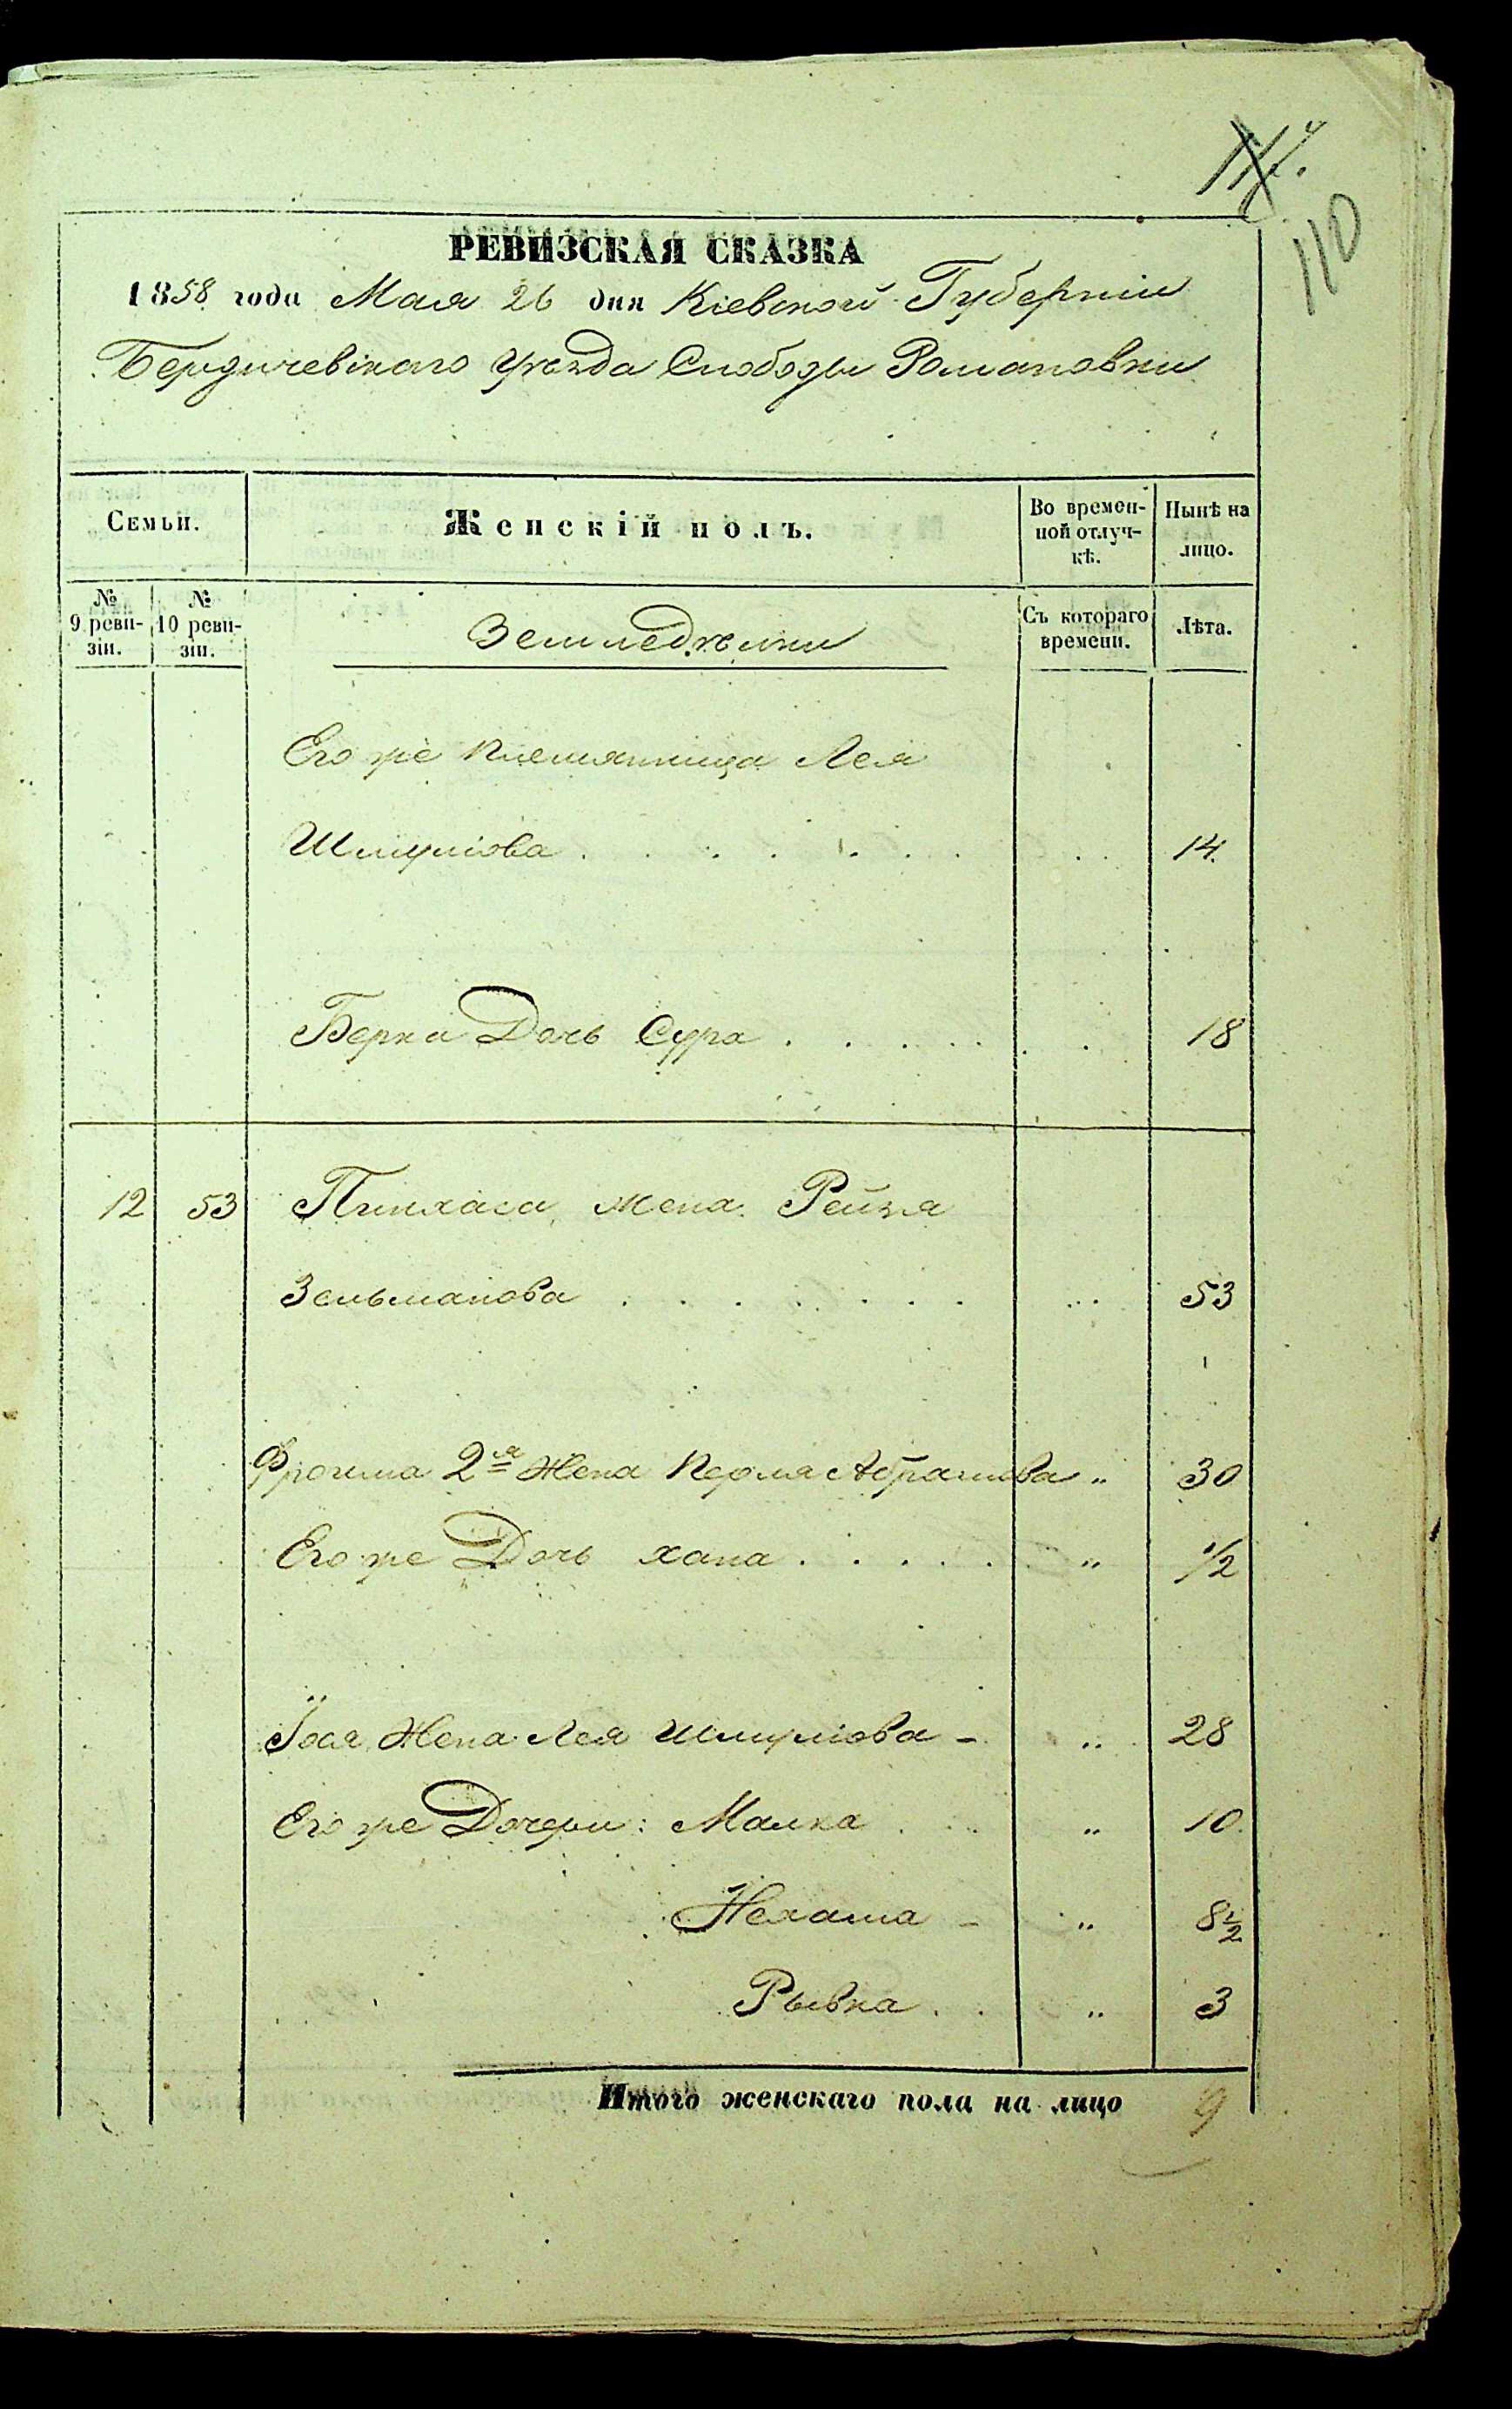 110
РЕВИЗСКАЯ СКАЗКА
1858 года Мая 26 дня Кіевской Губерніи
Бердичевскаго уѣзда Слободы Романовки
Семьи.
Женскій полъ.
Во времен-
ной отлуч-
кѣ.
Нынѣ на
лицо.
№
9 реви-
зіи.
№
10 реви-
зіи.
Земледѣльцы
Съ котораго
времени.
Лѣта.
Его же племянница Лея
Шмулiова . . . . . . . 14.
Берка Дочь Сура . . . . . . 18
12 53 Пинхаса жена Рейзя
Зельманова . . . . . . . 53
Фроима 2я Жена Перля Абрамова „ 30
Его же Дочь хана . . . . . „ 1/2
Iося Жена Лея Шмулiова - „ 28
Его же Дочери: Малка . . „ 10.
Нехама - „ 8 1/2
Рывка . . „ 3
Итого женскаго пола на лицо 9